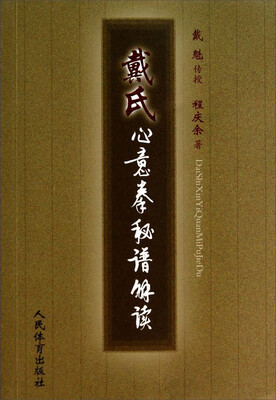 戴魁 传授
程庆余 著
DaiShiXinYiQuanMiPuJieDu
戴氏
心意拳秘谱解读
人民体育出版社